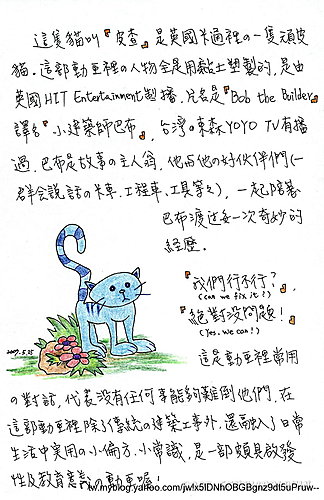 這隻貓叫『皮查』是英國卡通裡の一隻頑皮
貓。這部動画裡の人物全是用黏土塑製的,是由
英國HIT Entertainment製播,片名是『Bob the Builder』
譯名『小建築師巴布』,台灣の東森YOYO TV有播
過,巴布是故事の主人翁,他与他の好伙伴們(一
群会說話の卡車、工程車、工具等等),一起陪著
巴布渡过每一次奇妙的
經歷。
『我們行不行?』
(can we fix it?)
『絕對沒問題!』
(Yes, we can!)
這是動画裡常用
の對話,代表沒有任何事能夠難倒他們,在
這部動画裡除了傳統の建築工事外,還融入了日常
生活中實用の小偏方、小常識,是一部頗具啟發
性及教育意義の動画喔!
2007.5.25
tw.myblog.yahoo.com/jwlx5lDNhOBGBgnz9dl5uPruw--